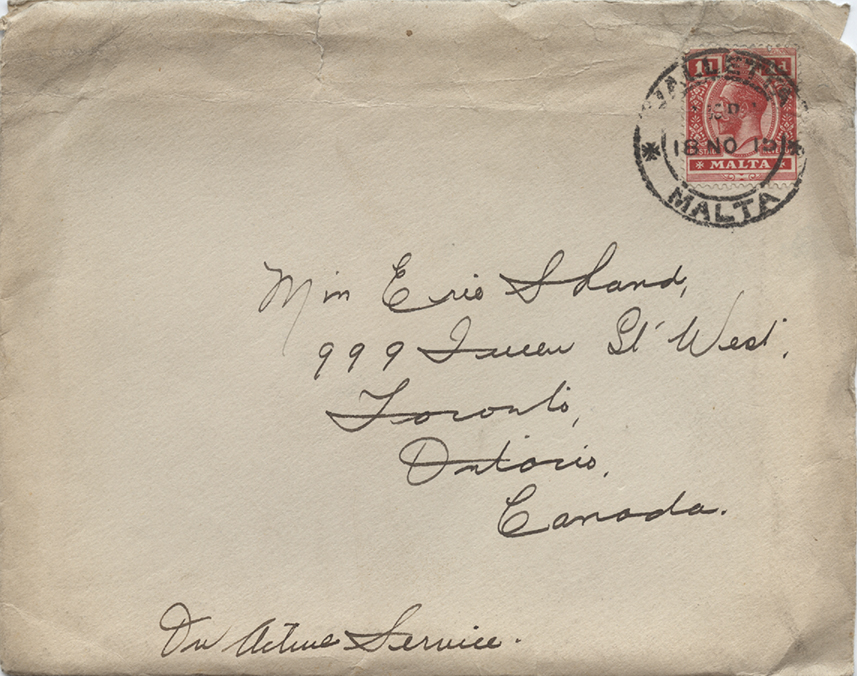 VALLETTA
18 NO 15
MALTA
1d 1d
MALTA
Miss Eric Shand,
999 Queen St West,
Toronto,
Ontario,
Canada.
On Active Service.